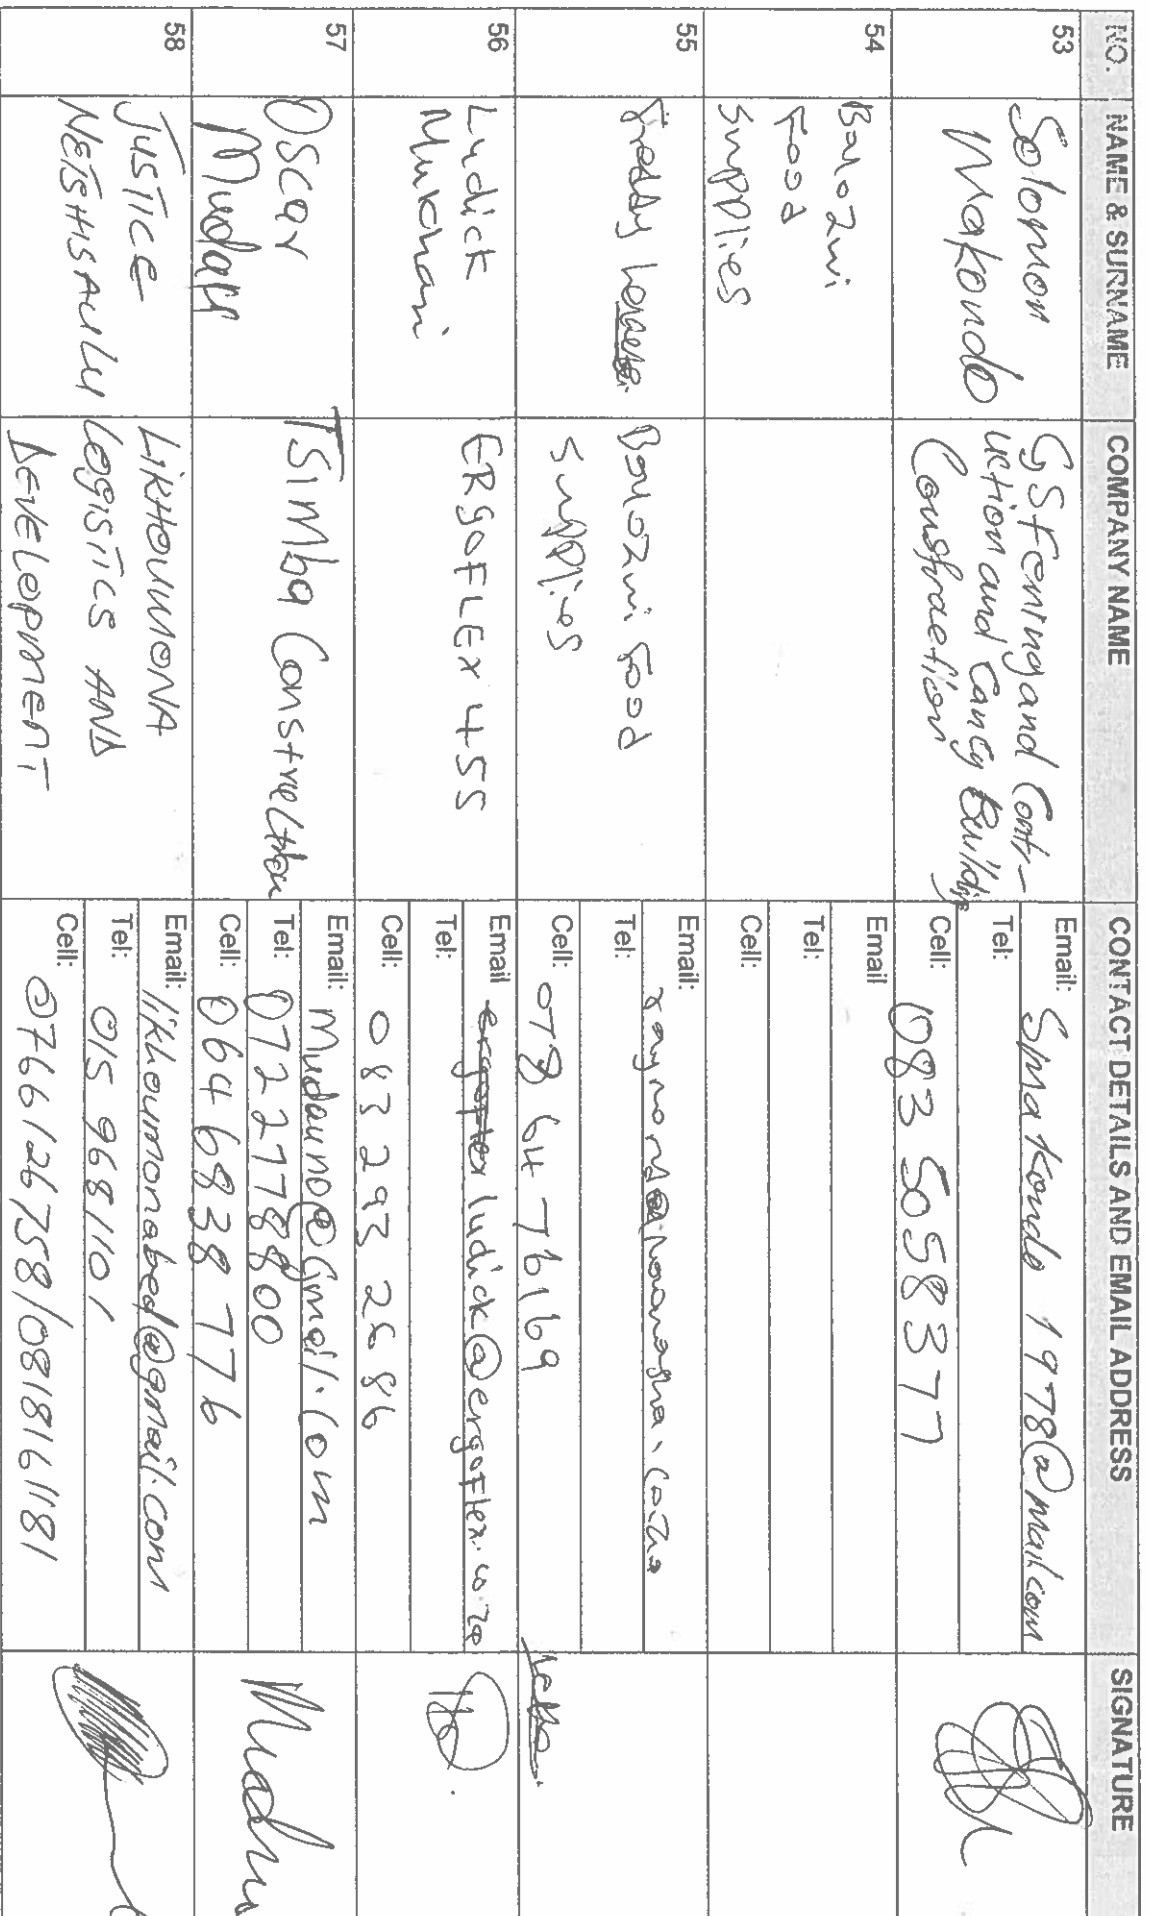 NO. NAME & SURNAME COMPANY NAME CONTACT DETAILS AND EMAIL ADDRESS SIGNATURE
53
Solomon
Makondo
GS Fening and Contr-
uction and Cancy Building
Constraction
Email: Smakondo 1978@mail.com
Tel:
Cell: 083 5058377
54
Barozwi
Food
Supplies
Email
Tel:
Cell:
55
Freddy
Barozwi Food
Supplies
Email:
Tel:
Cell: 078 6476169
56
Ludick
Mukhari
ERGOFLEX 455
Email ludick@ergoflex.co.za
Tel:
Cell: 083 293 2686
57
Oscar
Mudau
TSimba Construction
Email: Mudauno@Gmail.com
Tel: 0722778800
Cell: 064 6838 776
58
JUSTICE
NETSHISAULU
LIKHOUMONA
LOGISTICS AND
DEVELOPMENT
Email: likhoumonabed@gmail.com
Tel: 015 9681101
Cell: 0766126758/0818161181